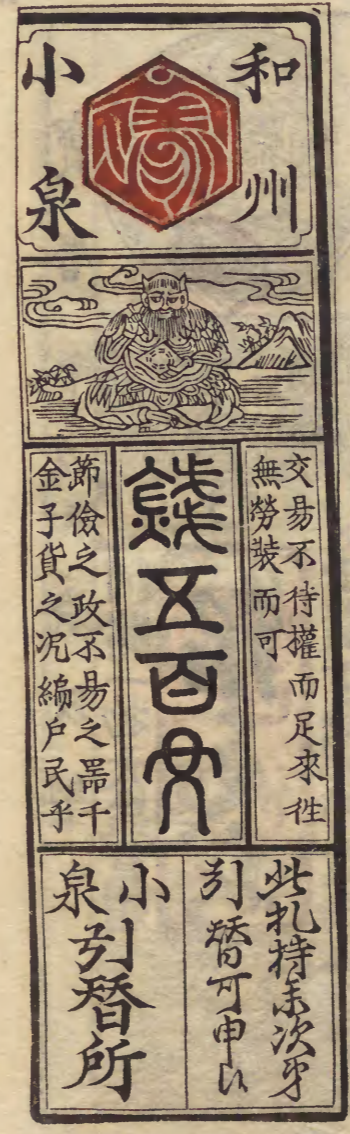 和州
小泉
交易不待權而足來徃
無勞裝而可
錢五百文
節儉之政不易之噐千
金子貨之况編戶民乎
此札持来次第
引替可申候
小泉
引替所